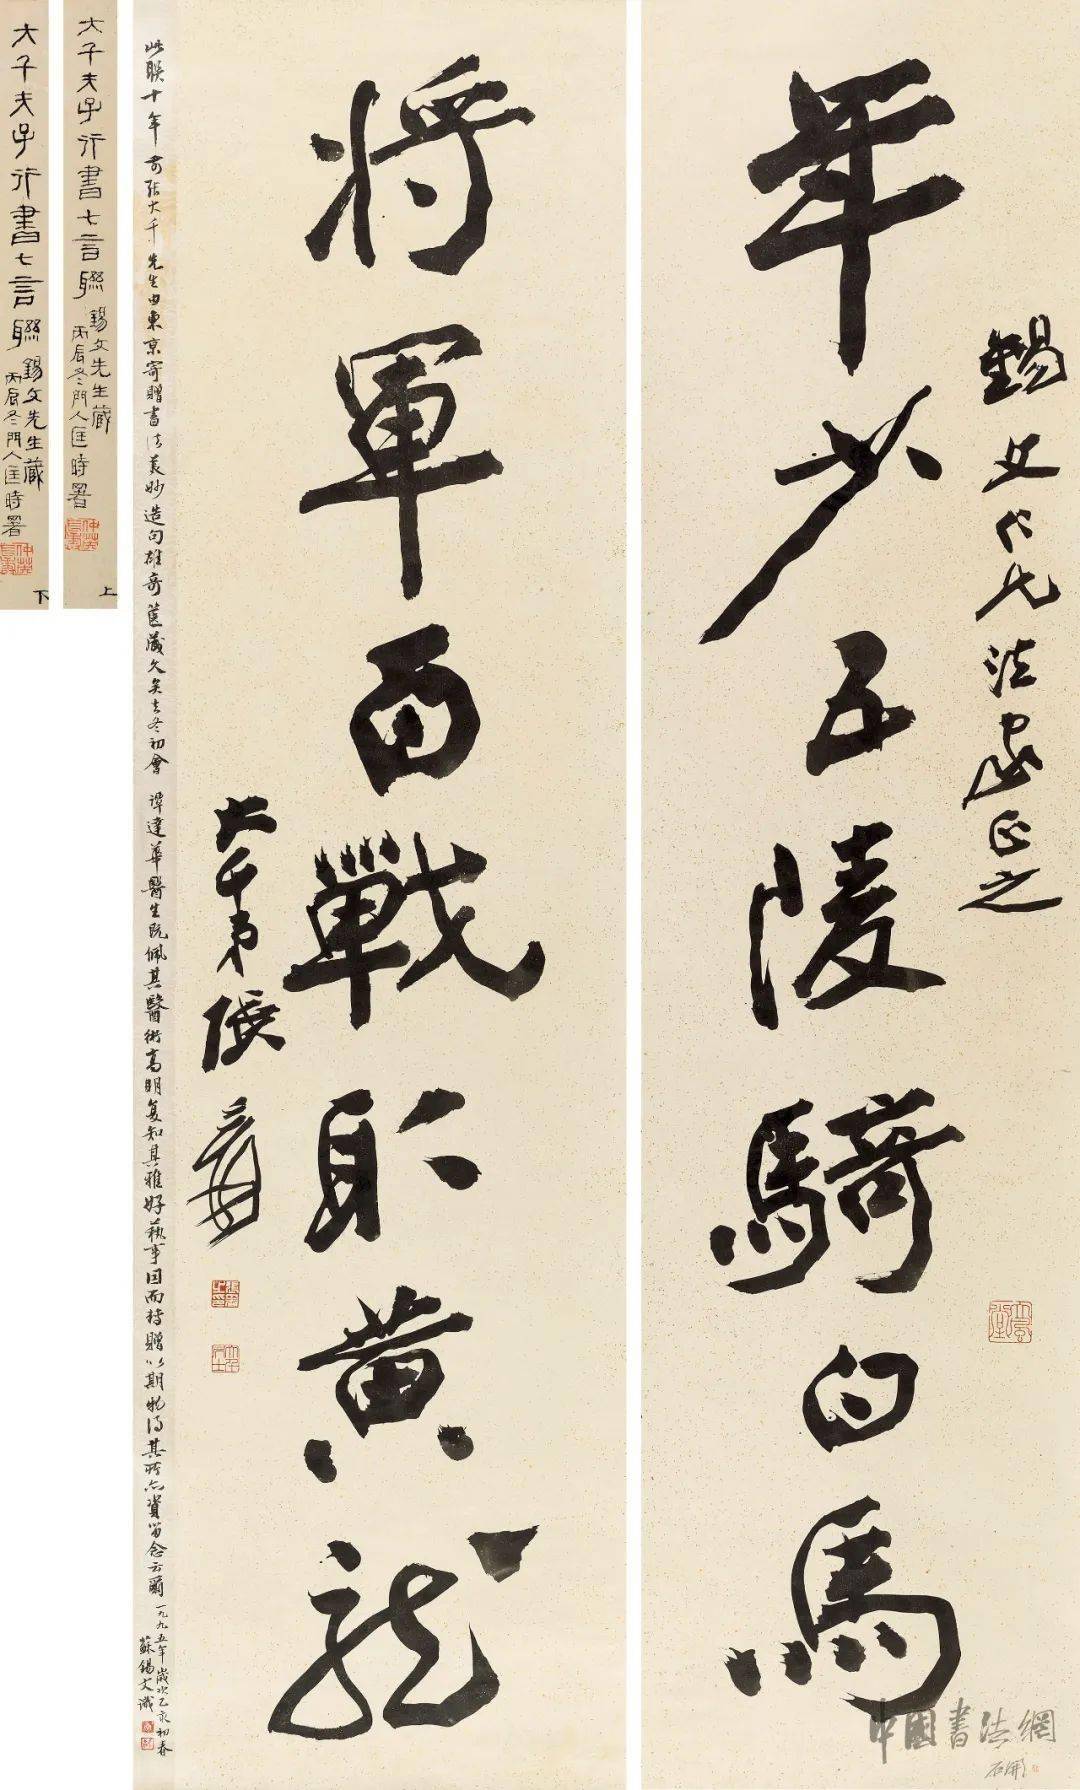 錫文仁兄法家正之
年少五陵騎白馬
大風堂
將軍百戰取黃龍
大千弟張爰
大千居士
此聯十年前張大千先生由東京寄贈書法美妙造句雄奇篋藏久矣去冬初會 譚達華醫生既佩其醫術高明复知其雅好藝事因而持贈以期物得其所亦資留念云爾
一九九五年歲次乙亥初春
蘇錫文識
大千夫子行書七言聯
錫文先生藏
丙辰冬門人匡時署
上
大千夫子行書七言聯
錫文先生藏
丙辰冬門人匡時署
下
中國書法網
石開